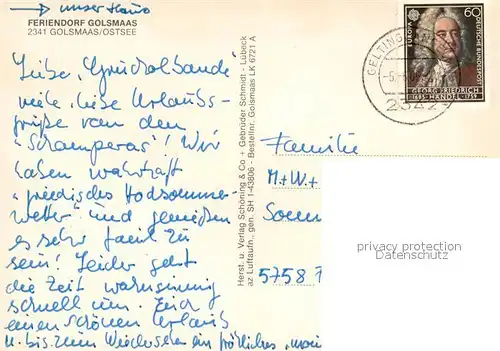 → unser Haus
FERIENDORF GOLSMAAS
2341 GOLSMAAS/OSTSEE
Liebe
viele liebe Urlaubs-
grüße von den
"Schamperas"! Wir
haben wahrhaft
Hochsommer-
wetter" und genießen
es sehr faul zu
sein! Leider geht
die Zeit wahnsinnig
schnell um. Euch
einen schönen Urlaub
u. bis zum Wiedersehen ein fröhliches
Herst. u. Verlag Schöning & Co + Gebrüder Schmidt - Lübeck
az Luftaufn., gen. SH 1-43806 - Bestellnr. Golsmaas LK 6721 A
EUROPA
60
DEUTSCHE BUNDESPOST
GEORG FRIEDRICH
HÄNDEL 1759
GELTING
Familie
M.+W.+
5758
privacy protection
Datenschutz